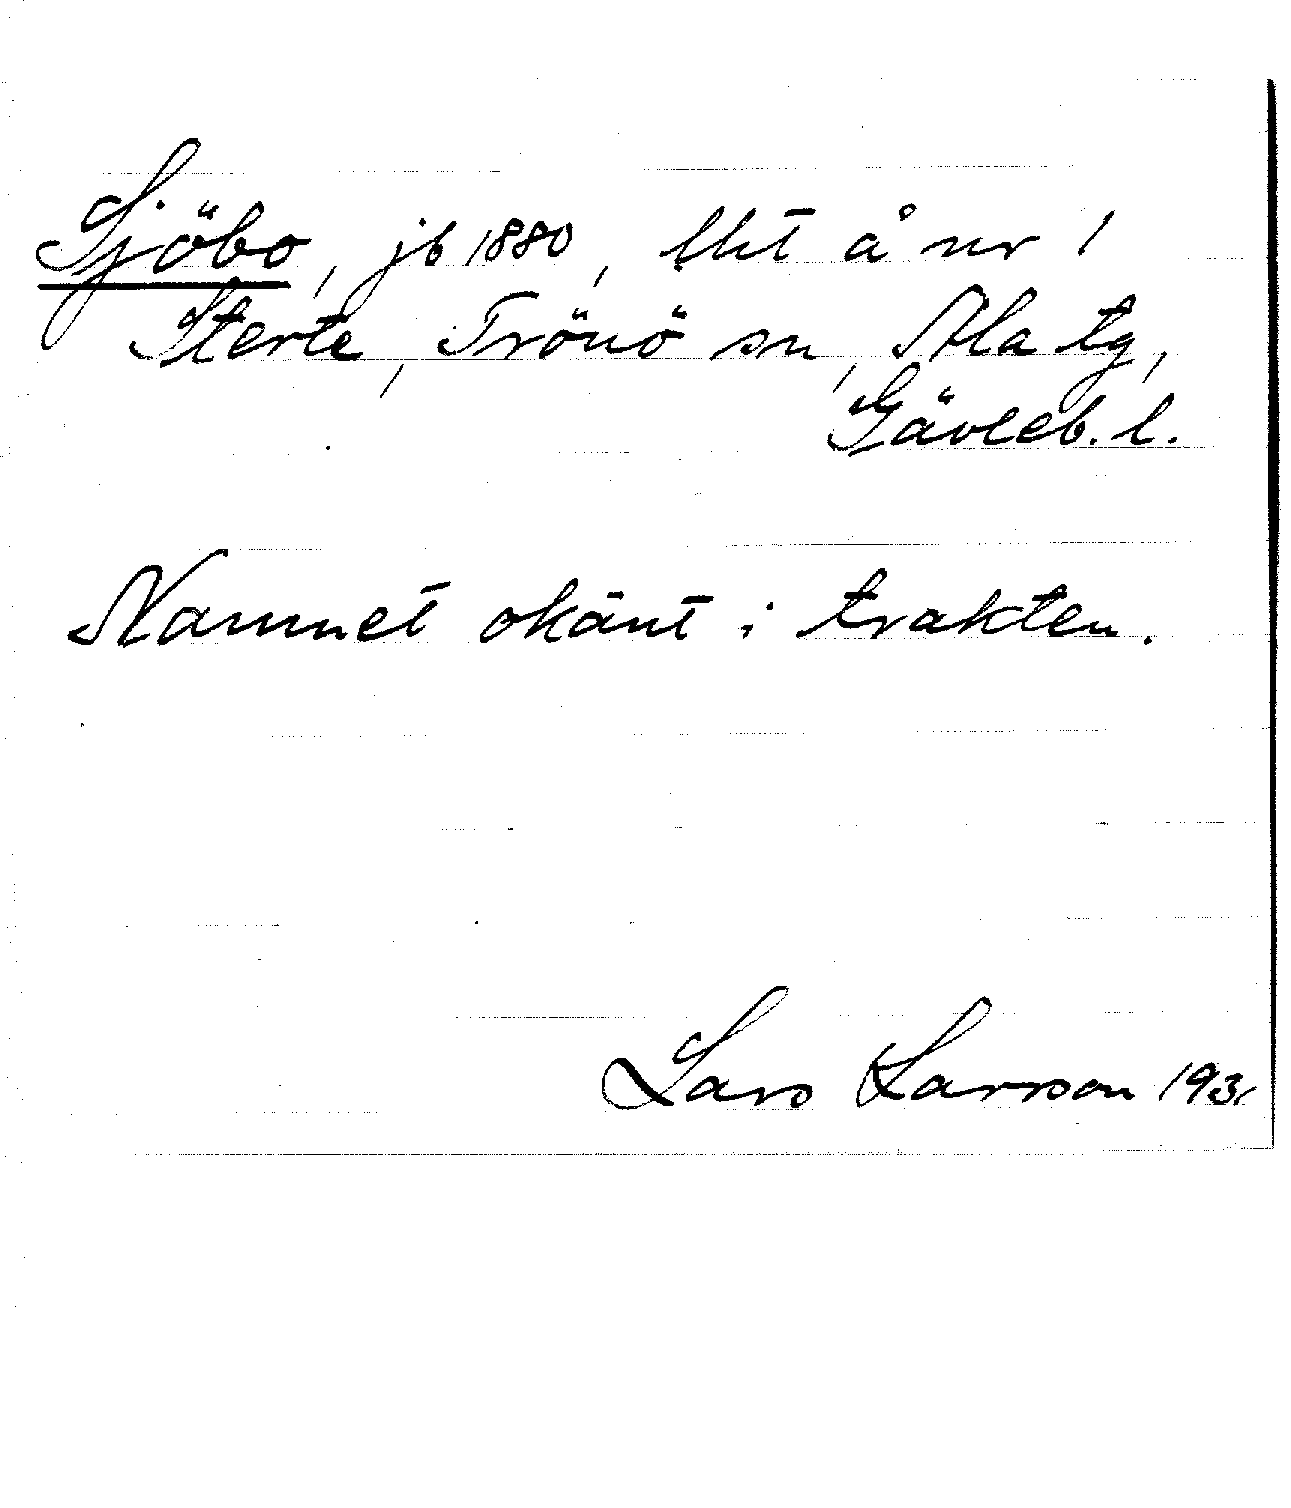 Sjöbo, jb 1880, lht å nr 1
Sterte, Trönö sn, Ala tg,
Gävleb. l.
Namnet okänt i trakten.
Lars Larsson 1931